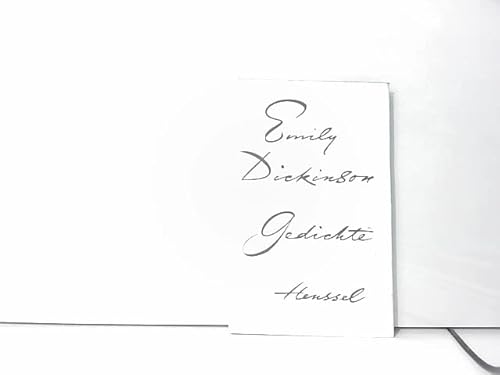 Emily
Dickinson
Gedichte
Henssel